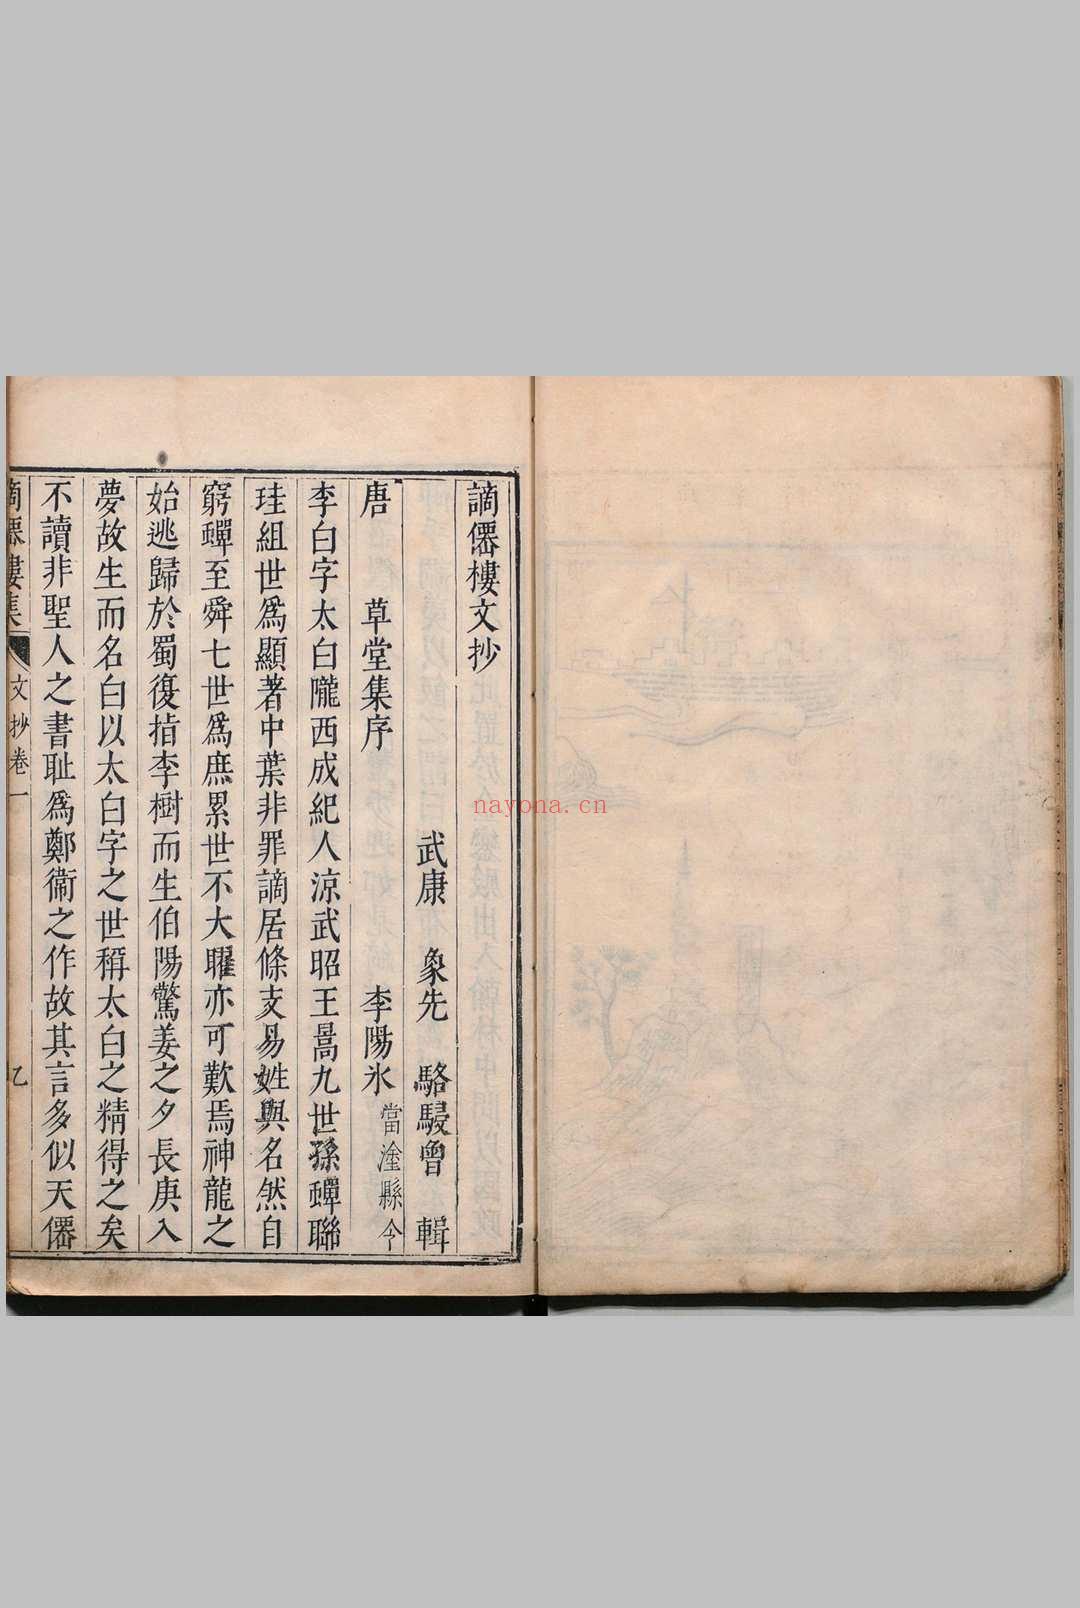 謫僊樓文抄
武康　象先　駱駸曾　輯
唐　草堂集序　李陽氷當塗縣令
李白字太白隴西成紀人涼武昭王暠九世孫蟬聯
珪組世爲顯著中葉非罪謫居條支易姓與名然自
窮蟬至舜七世爲庶累世不大曜亦可歎焉神龍之
始逃歸於蜀復指李樹而生伯陽驚姜之夕長庚入
夢故生而名白以太白字之世稱太白之精得之矣
不讀非聖人之書耻爲鄭衞之作故其言多似天僊
謫僊樓集　文抄卷一　乙
nayona.cn